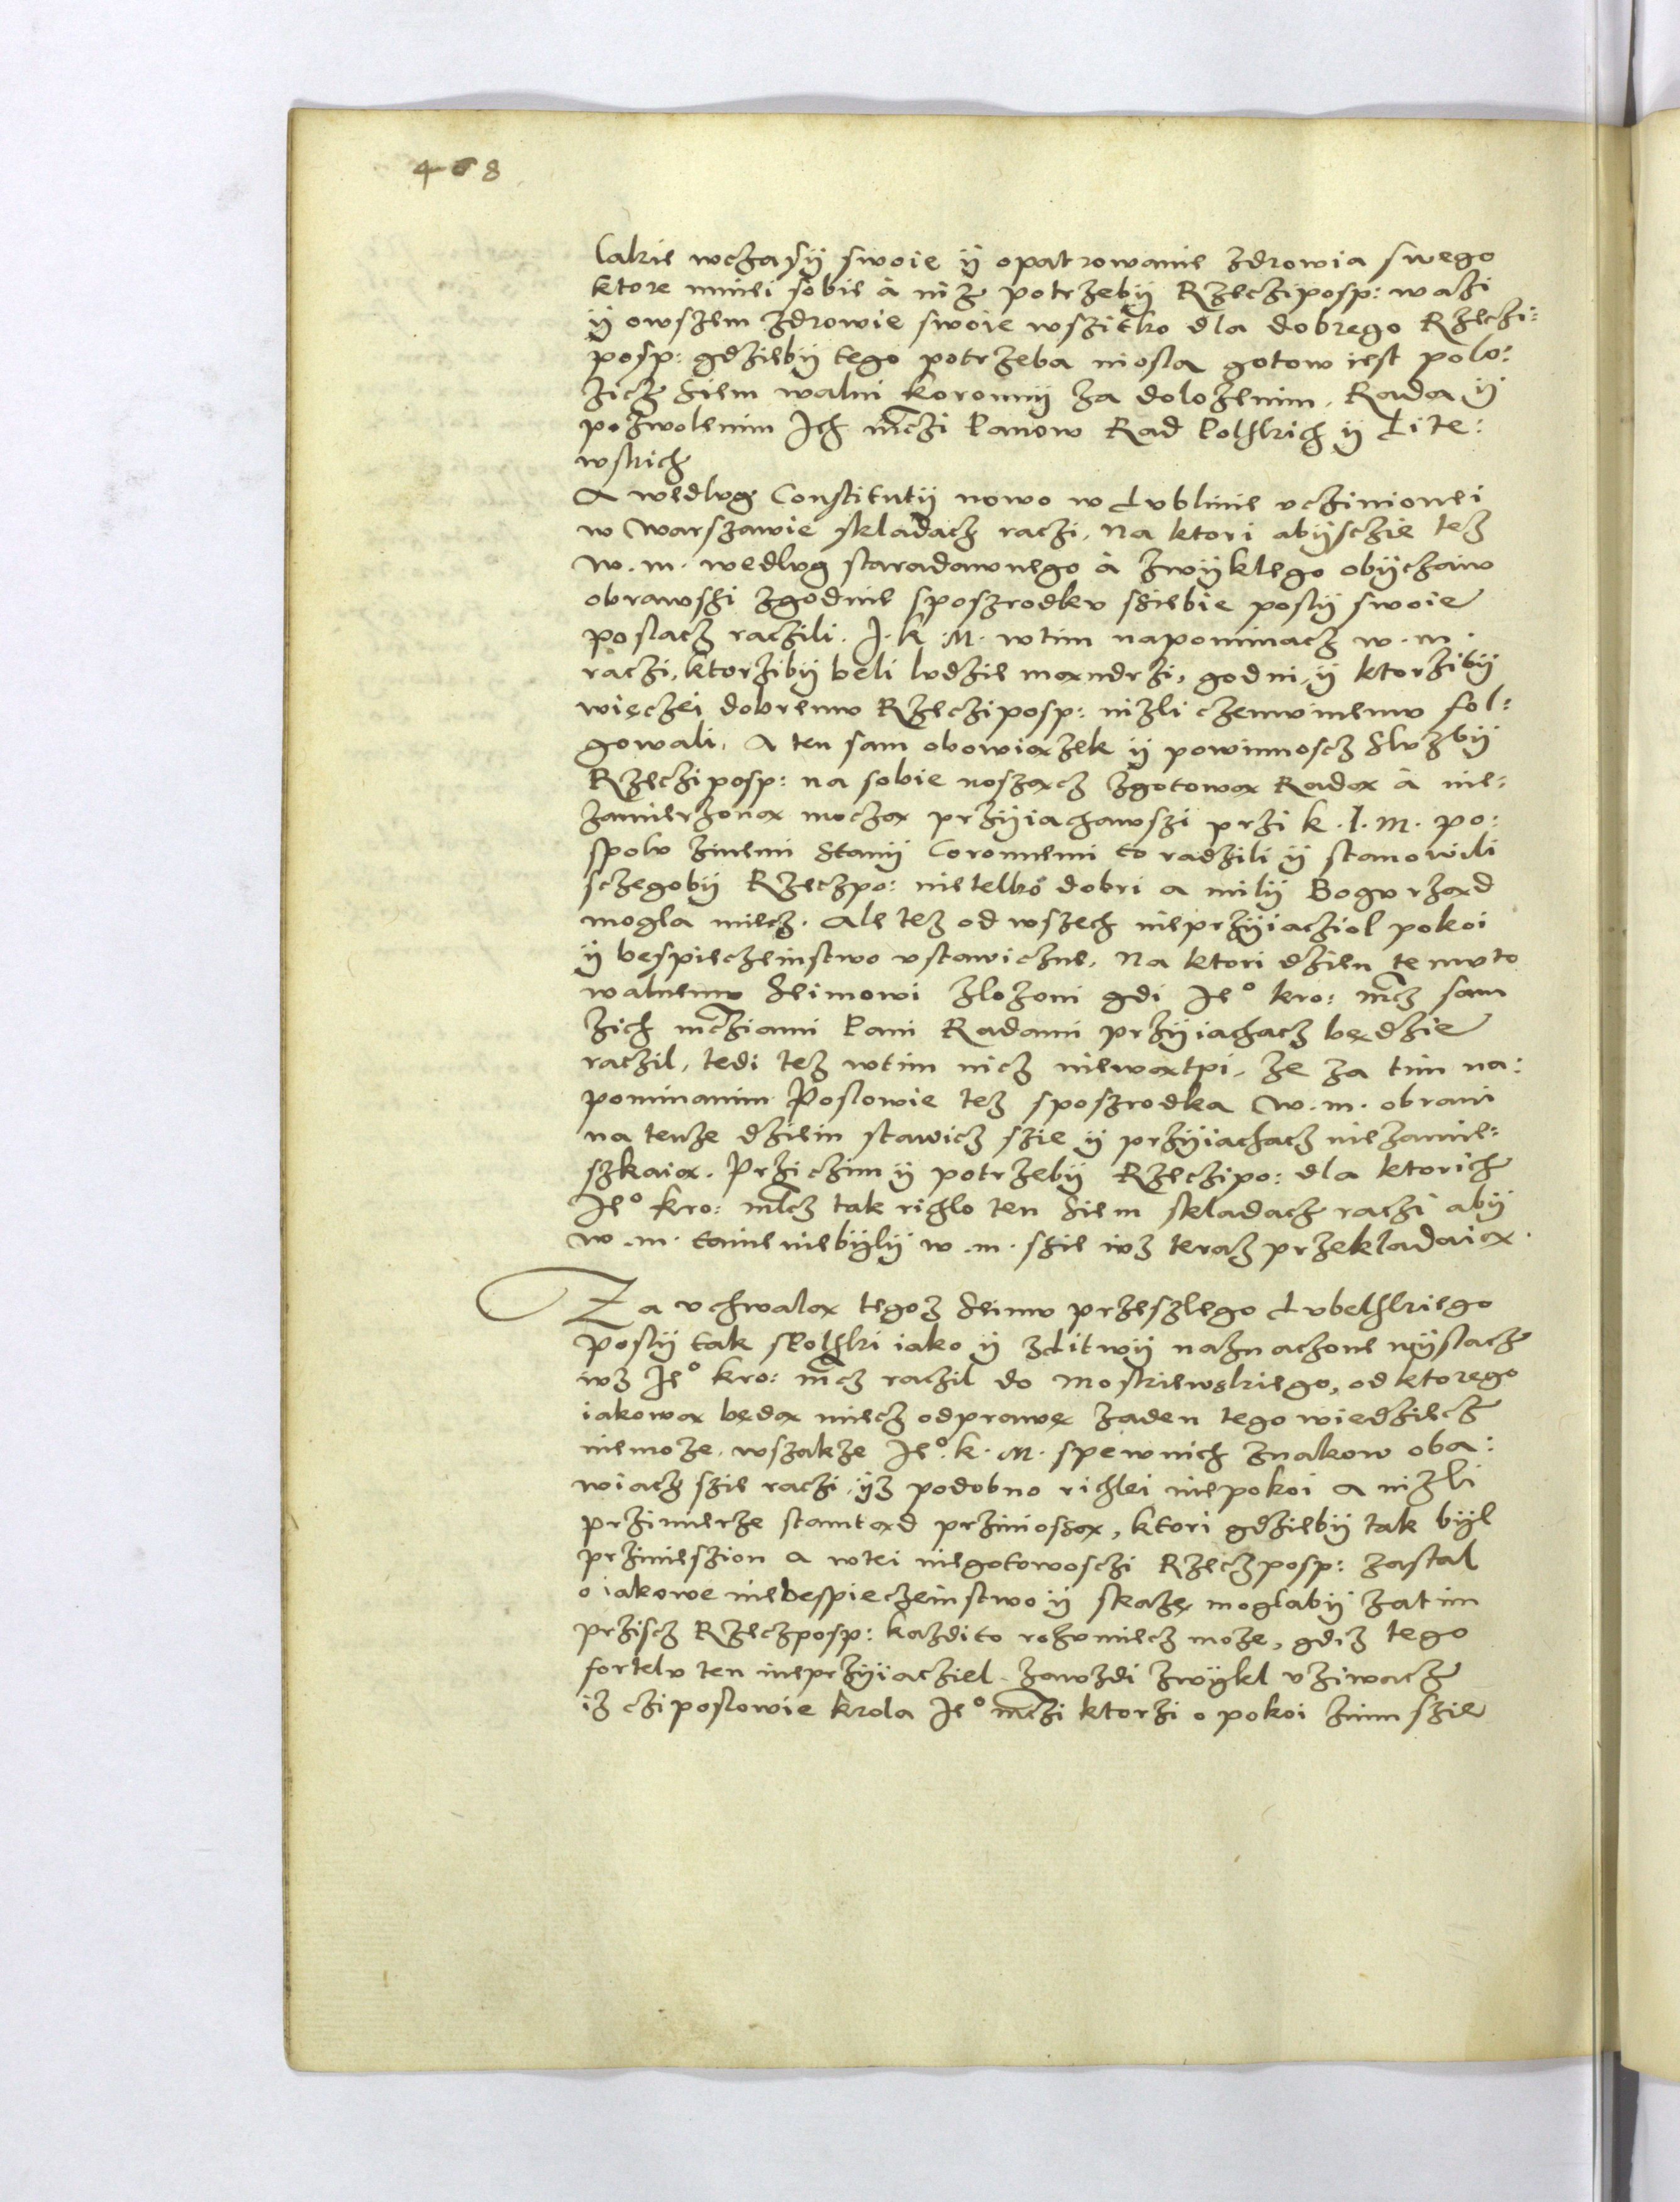 408
lakie wczasÿ swoie ÿ opatrowanie zdrowia swego
ktore mniei sobie à niz potrzebÿ Rzecziposp: wazi
ÿ owszem zdrowie swoie wszitko dla dobrego Rzeczi:
posp: gdziebÿ tego potrzeba niosla gotow iest polo:
zicz Siem walni koronnÿ za dolozenim, Rada ÿ
pozwolenim Ich mczi Panow Rad Polskich ÿ Lite:
wskich
A wedlug Constitutÿ nowo w Lublinie vczinionei
w Warszawie skladacz raczi, na ktori abÿsczie tez
w. m. wedlug staradawnego à zwÿklego obÿczaiu
obrawszi zgodnie sposzrodku sziebie poslÿ swoie
poslacz raczili. J. K. M. wtim napominacz w. m.
raczi, ktorzibÿ beli ludzie mąndrzi, godni, ÿ ktorzibÿ
więczei dobremu Rzecziposp: nizli czemuinemu fol:
gowali, A ten sam obowiązek ÿ powinnoscz Sluzbÿ
Rzecziposp: na sobie noszącz zgotową Radą à nie:
zamierzoną moczą przÿiachawszi przi K. J. M. po:
spolu znemi Stanÿ Coronnemi to radzili ÿ stanowili
sczegobÿ Rzeczpo: nietelko dobri a milÿ Bogu rząd
mogla miecz. Ale tez od wszech nieprzÿiacziol pokoi
ÿ bespieczeinstwo vstawiczne, Na ktori dzien temuto
walnemu Seimowi zlozoni gdi Je° kro: mcz sam
zich mcziami Pani Radami przÿiachacz będzie
raczil, tedi tez wtim nicz niewątpi, ze za tim na:
pominanim Poslowie tez sposzrodka w. m. obrani
na tenze dziein stawicz szie ÿ przÿiachacz niezamie:
szkaią. Przi czim ÿ potrzebÿ Rzeczipo: dla ktorich
Je° kro: mcz tak richlo ten Siem skladacz raczi abÿ
w. m. taine niebÿlÿ w. m. szie iuz teraz przekladaią.
Za vchwalą tegoz Seimu przeszlego Lubelskiego
poslÿ tak sPolski iako ÿ zLitwÿ naznaczone wÿslacz
iuz Je° kro: mcz raczil do Moskiewskiego, od ktorego
iakową będą miecz odprawę zaden tego wiedziecz
niemoze, wszakze Je° K. M. spewnich znakow oba:
wiacz szie raczi, ÿz podobno richlei niepokoi a nizli
przimierze stamtąd przinioszą, ktori gdziebÿ tak bÿl
przinieszion a wtei niegotowoschi Rzeczposp: zastal
o iakowe niebespieczeinstwo ÿ skazę moglabÿ zatim
prziscz Rzeczposp: kazdito rozumiecz moze, gdiz tego
fortelu ten nieprzÿiacziel zawzdi zwÿkl vziwacz
iz czi poslowie krola Je° mczi ktorzi o pokoi znim szie